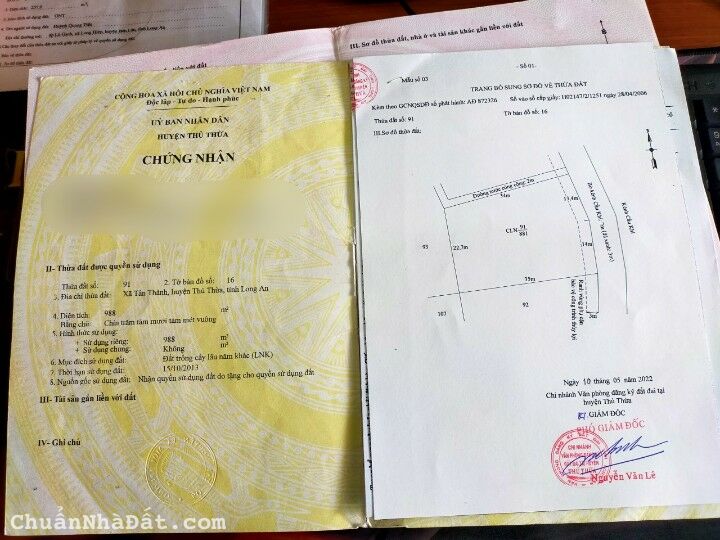 Huỳnh Quang Tiên
III. Sơ đồ thửa đất, nhà ở và tài sản khác gắn liền với đất
CỘNG HÒA XÃ HỘI CHỦ NGHĨA VIỆT NAM
Độc lập - Tự do - Hạnh phúc
ỦY BAN NHÂN DÂN
HUYỆN THỦ THỪA
CHỨNG NHẬN
II- Thửa đất được quyền sử dụng
1. Thửa đất số: 91 2. Tờ bản đồ số: 16
3. Địa chỉ thửa đất: Xã Tân Thành, huyện Thủ Thừa, tỉnh Long An
4. Diện tích: 988 m²
Bằng chữ: Chín trăm tám mươi tám mét vuông
5. Hình thức sử dụng:
+ Sử dụng riêng: 988 m²
+ Sử dụng chung: Không m²
6. Mục đích sử dụng đất: Đất trồng cây lâu năm khác (LNK)
7. Thời hạn sử dụng đất: 15/10/2013
8. Nguồn gốc sử dụng đất: Nhận quyền sử dụng đất do tặng cho quyền sử dụng đất
III- Tài sản gắn liền với đất
IV- Ghi chú
Mẫu số 03
- Số 01-
TRANG BỔ SUNG SƠ ĐỒ VẼ THỬA ĐẤT
Kèm theo GCNQSDĐ số phát hành: AĐ 872336 Số vào sổ cấp giấy: H02147/2/1251 ngày 28/04/2006
Thửa đất số: 91 Tờ bản đồ số: 16
III.Sơ đồ thửa đất:
Đường nước công cộng: 2m
54m
13,4m
CLN 91
881
93
22,7m
14m
75m
92
107
3m
Bờ kênh Cầu Khế, 7m (lộ xanh 3m)
Kênh Cầu Khế
Ranh vùng phụ cận
bảo vệ công trình thủy lợi
Ngày 10 tháng 05 năm 2022
Chi nhánh Văn phòng đăng ký đất đai tại
huyện Thủ Thừa
GIÁM ĐỐC
PHÓ GIÁM ĐỐC
CHI NHÁNH
THỦ THỪA
Nguyễn Văn Lê
ChuẩnNhàĐất.com